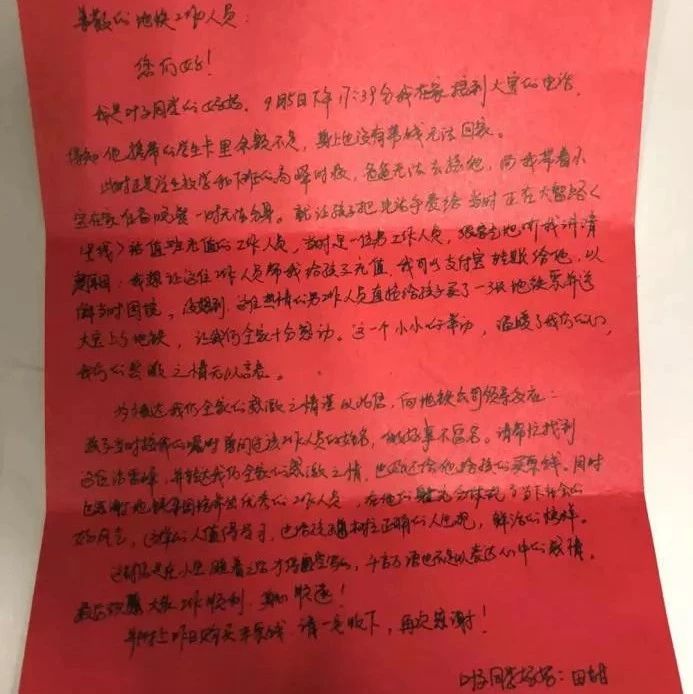 尊敬的地铁工作人员：
您们好！
我是叶子同学的妈妈，9月5日下午17:39分我在家接到大宝的电话，
得知他携带的学生卡里余额不足，身上也没有带钱无法回家。
此时正是学生放学和下班的高峰时段，爸爸无法去接他，而我带着小
宝在家准备晚餐一时无法分身。就让孩子把电话手表给当时正在大
号线）站值班充值的工作人员，当时是一位男工作人员，很客气地听我讲清
我想让这位工作人员帮我给孩子充值，我可以支付宝转账给他，以
解当时困境。没想到，这位热情的男工作人员直接给孩子买了一张地铁票并送
大宝上了地铁，让我们全家十分感动。这一个小小的举动，温暖了我们的心，
我们的感激之情无以言表。
为表达我们全家的感激之情谨以此信，向地铁公司领导反应：
孩子当时按我的嘱咐曾问过该工作人员的姓名，做好事不留名。请帮忙找到
这位活雷锋，并转达我们全家的感激之情，也还给他给孩的买票钱。同时
也感谢地铁集团培养出优秀的工作人员，在他们身上充分体现了当下社会的
好风气，这样的人值得学习，也给孩子树立正确的人生观，鲜活的榜样。
这封信是在小宝睡着之后才得空写的，千言万语也不足以表达心中的感情。
最后祝愿大家工作顺利，身心顺遂！
并附上昨日购买车票钱，请一定收下，再次感谢！
叶子同学妈妈：田甜